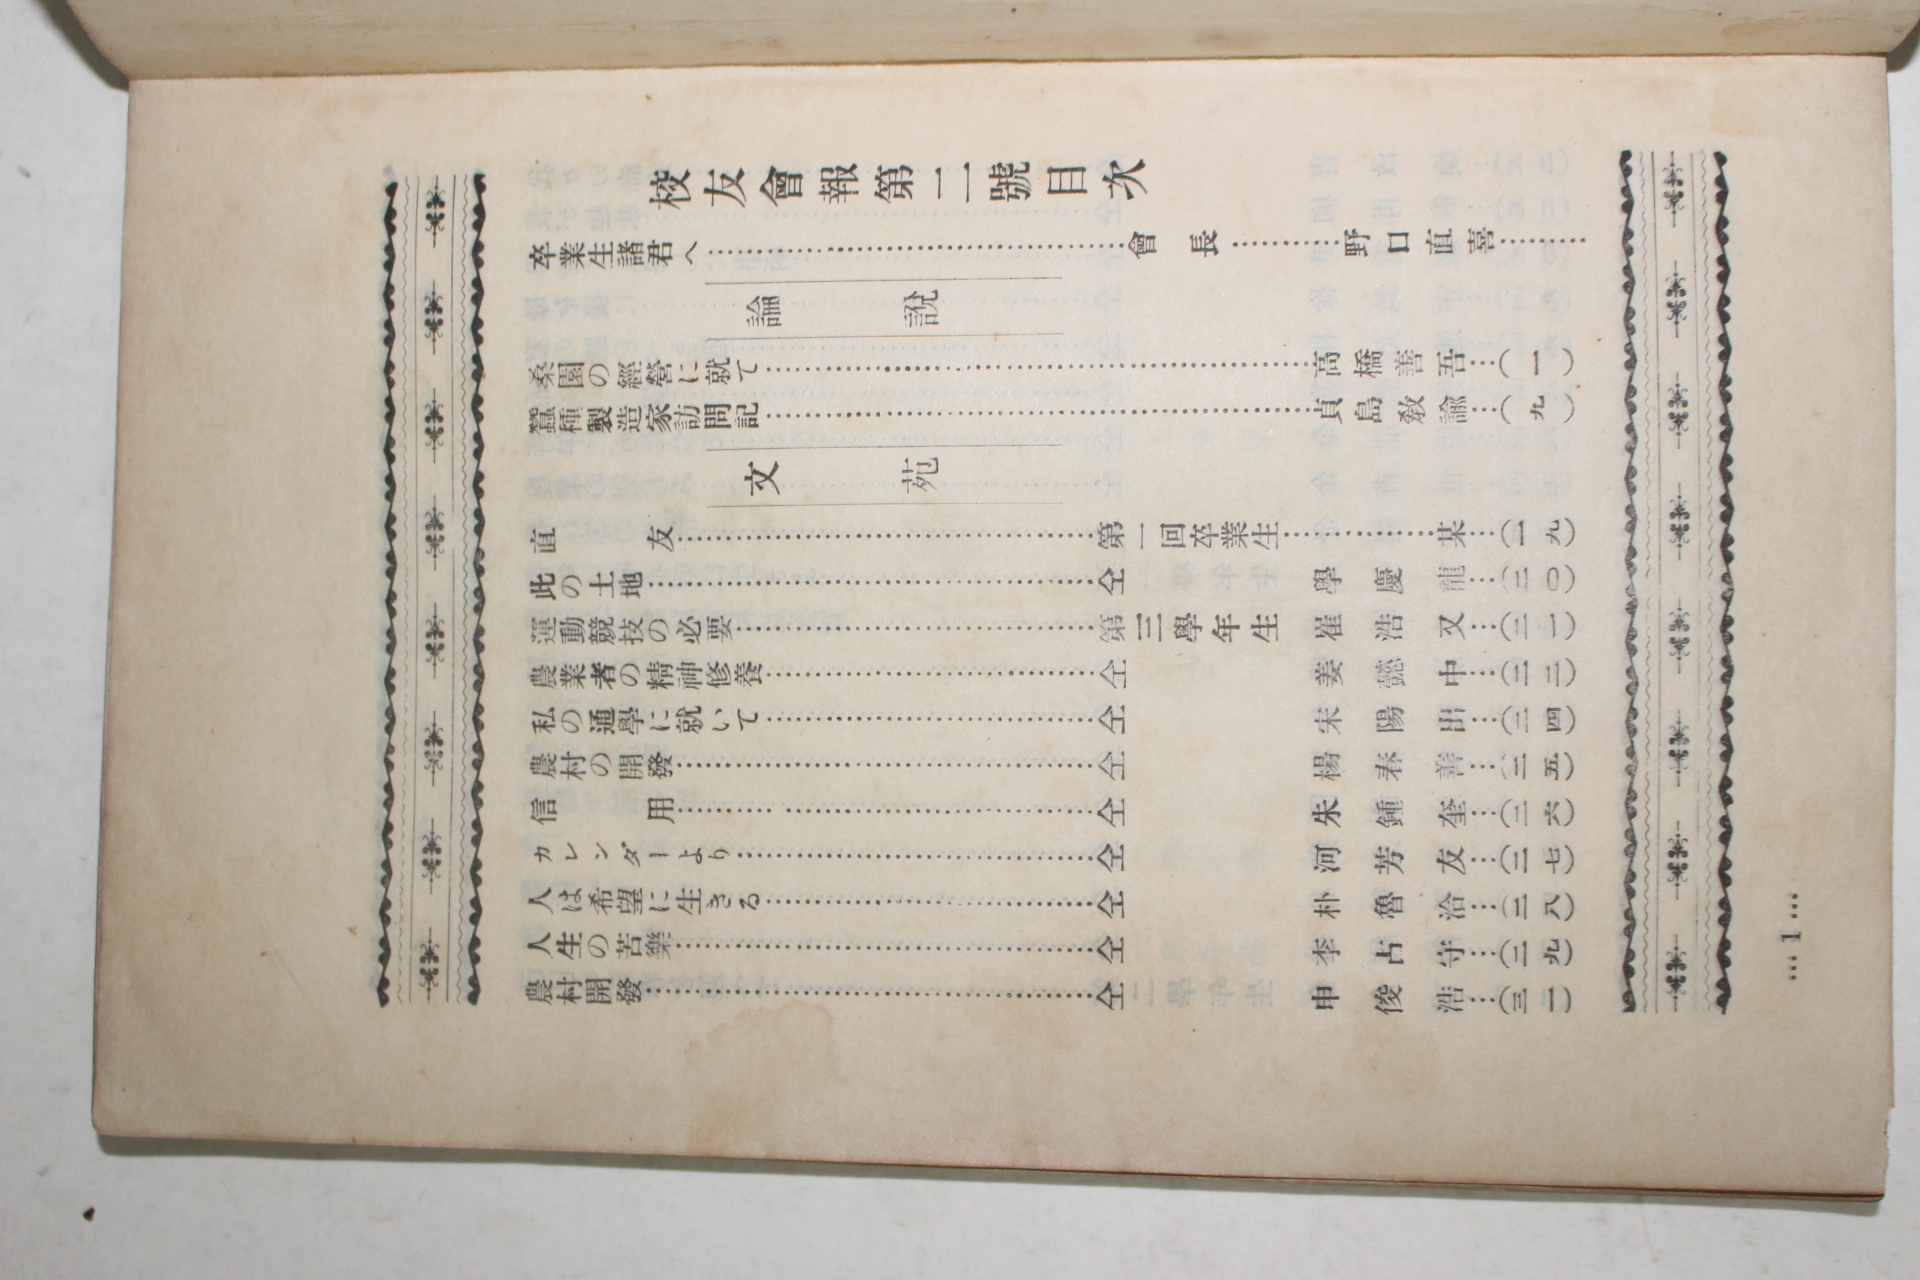 校友會報第二號目次
卒業生諸君へ……會長……野口直喜……
論說
桑園の經營に就て……高橋善吾…(一)
蠶種製造家訪問記……貞島教諭…(九)
文苑
直友……第一回卒業生……某…(一九)
此の土地……仝 學慶龍…(二〇)
運動競技の必要……第三學年生 崔浩又…(二一)
農業者の精神修養……仝 姜懿中…(二二)
私の通學に就いて……仝 宋陽出…(二四)
農村の開發……仝 楊春善…(二五)
信用……仝 朱鍾奎…(二六)
カレンダーより……仝 河芳友…(二七)
人は希望に生きる……仝 朴魯洽…(二八)
人生の苦樂……仝 李占守…(二九)
農村開發……仝 申俊浩…(三一)
…1…